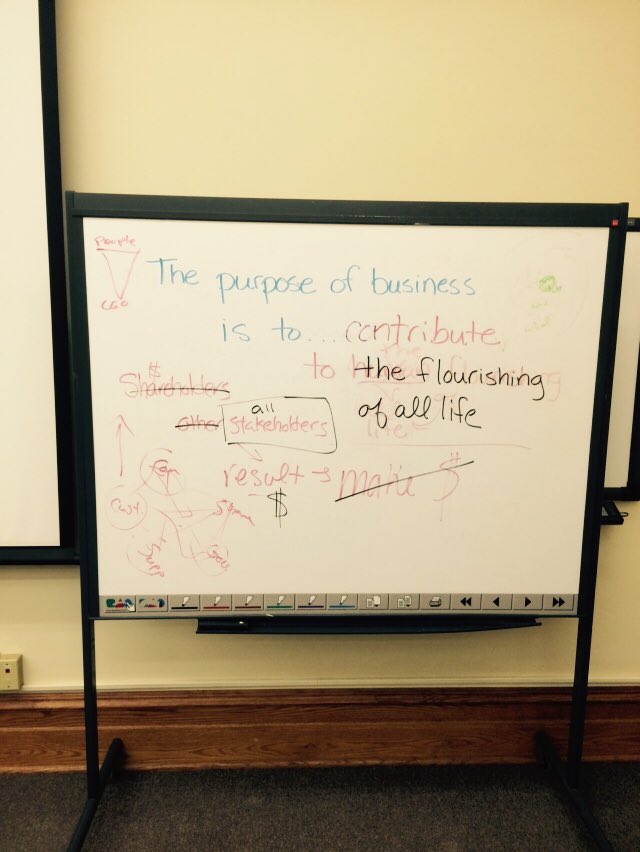 People
CEO
The purpose of business
is to... contribute
to the flourishing
of all life
$
Shareholders
all
other stakeholders
result → make $
$
Com
Cust
Supp